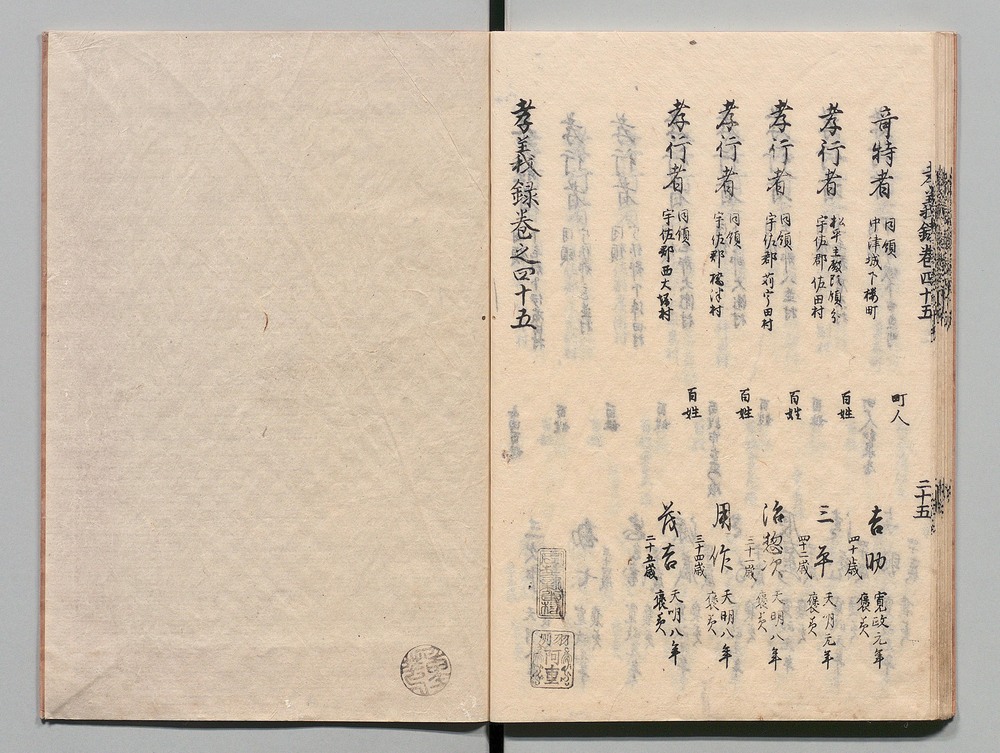 孝義録巻四十五
二十五
竒特者 同領 中津城下櫻町 町人 吉助 四十歳 寛政元年 褒美
孝行者 松平主殿頭領分 宇佐郡佐田村 百姓 三平 四十二歳 天明元年 褒美
孝行者 同領 宇佐郡苅宇田村 百姓 治惣次 三十一歳 天明八年 褒美
孝行者 同領 宇佐郡 百姓 周作 三十四歳 天明八年 褒美
孝行者 同領 宇佐郡西大 村 百姓 茂吉 二十五歳 天明八年 褒美
孝義録巻之四十五